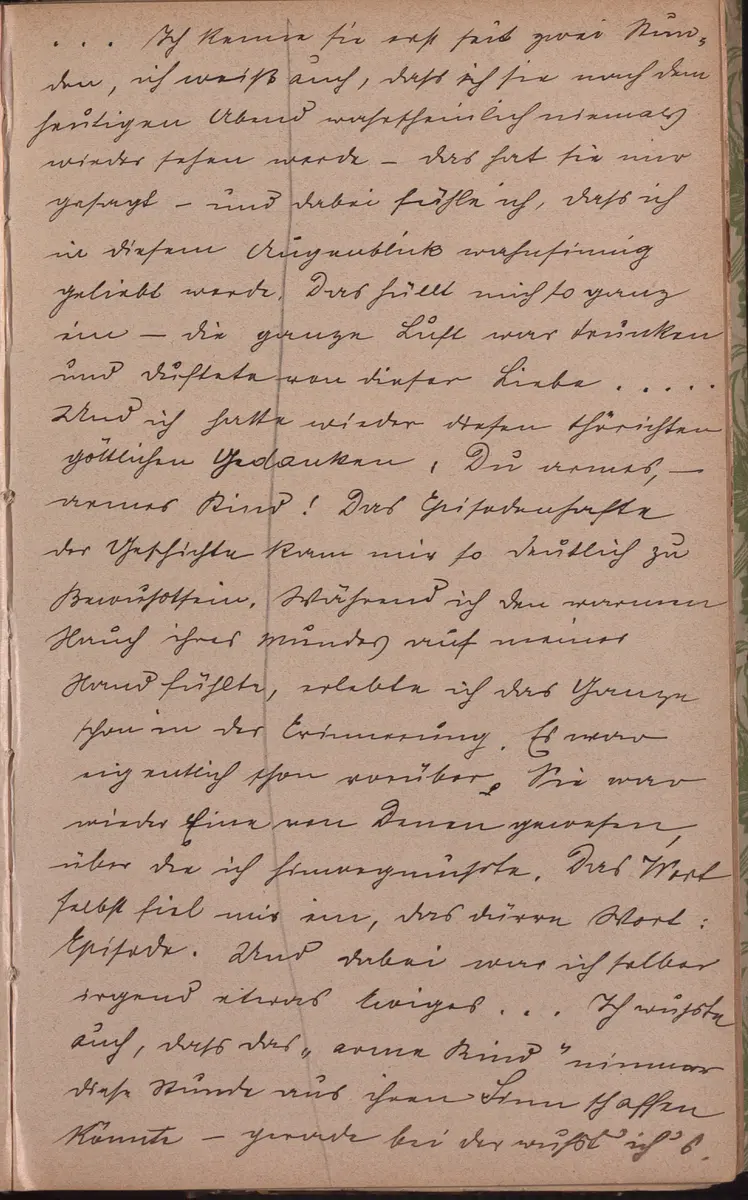 ... Ich kenne sie erst seit zwei Stun-
den, ich weiß auch, dass ich sie nach dem
heutigen Abend wahrscheinlich niemals
wieder sehen werde – das hat sie mir
gesagt – und dabei fühle ich, dass ich
in diesem Augenblick wahnsinnig
geliebt werde. Das hüllt mich so ganz
ein – die ganze Luft war trunken
und duftete von dieser Liebe .....
Und ich hatte wieder diesen thörichten
göttlichen Gedanken, Du armes, –
armes Kind! Das Episodenhafte
der Geschichte kam mir so deutlich zu
Bewußtsein. Während ich den warmen
Hauch ihres Mundes auf meiner
Hand fühlte, erlebte ich das Ganze
schon in der Erinnerung. Es war
eigentlich schon vorüber. Sie war
wieder Eine von Denen gewesen,
über die ich hinwegmusste. Das Wort
selbst fiel mir ein, das dürre Wort:
Episode. Und dabei war ich selber
irgend etwas Ewiges ... Ich wusste
auch, dass das „arme Kind" nimmer
diese Stunde aus ihrem Sinn schaffen
könnte – gerade bei der wußt' ich's.